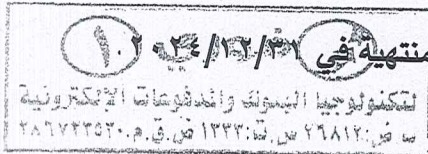 منتهية في ٢٠٢٤/١٢/٣١
لتكنولوجيا البنوك والمدفوعات الالكترونية
ب ض: ٢٦٨١٢ س.ت: ١٣٣٣ ض.ق.م: ٢٨٦٧٣٣٥٢٠